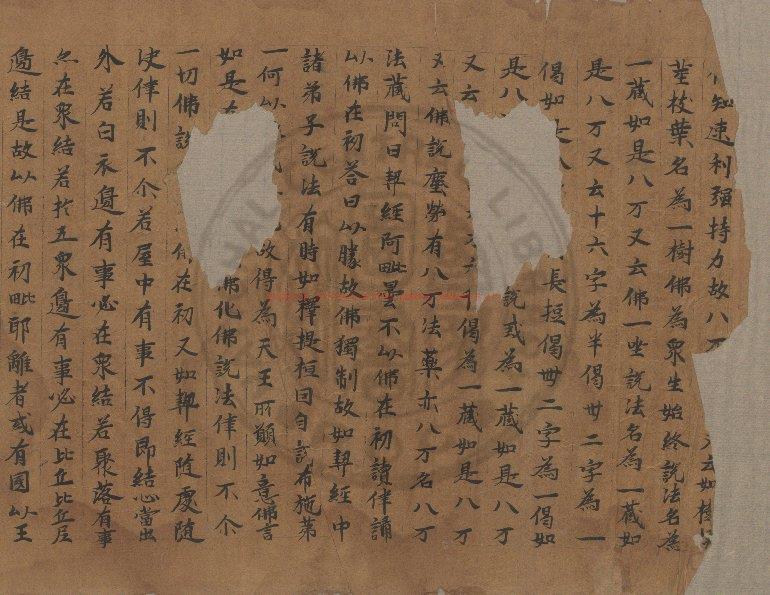 知速利彊持力故八万 又云如樹
莖枝葉名為一樹佛為衆生始終說法名為
一藏如是八万又云佛一坐說法名為一藏如
是八万又云十六字為半偈丗二字為一
偈如是八 長𢭏偈丗二字為一偈如
是八 說或為一藏如是八万
又云 偈為一藏如是八万
又云佛說塵勞有八万法藥亦八万名八万
法藏問曰契經阿毗曇不以佛在初讀律誦
以佛在初荅曰以勝故佛獨制故如契經中
諸弟子說法有時如釋提桓因自說布施苐
一何以 故得為天王所願如意佛言
如是 佛化佛說法律則不尒
一切佛說 佛在初又如契經隨處隨
決律則不尒若屋中有事不得即結必當出
外若白衣邊有事必在衆結若聚落有事
亦在衆結若於五衆邊有事必在比丘比丘尼
邊結是故以佛在初毗耶離者或有國以王